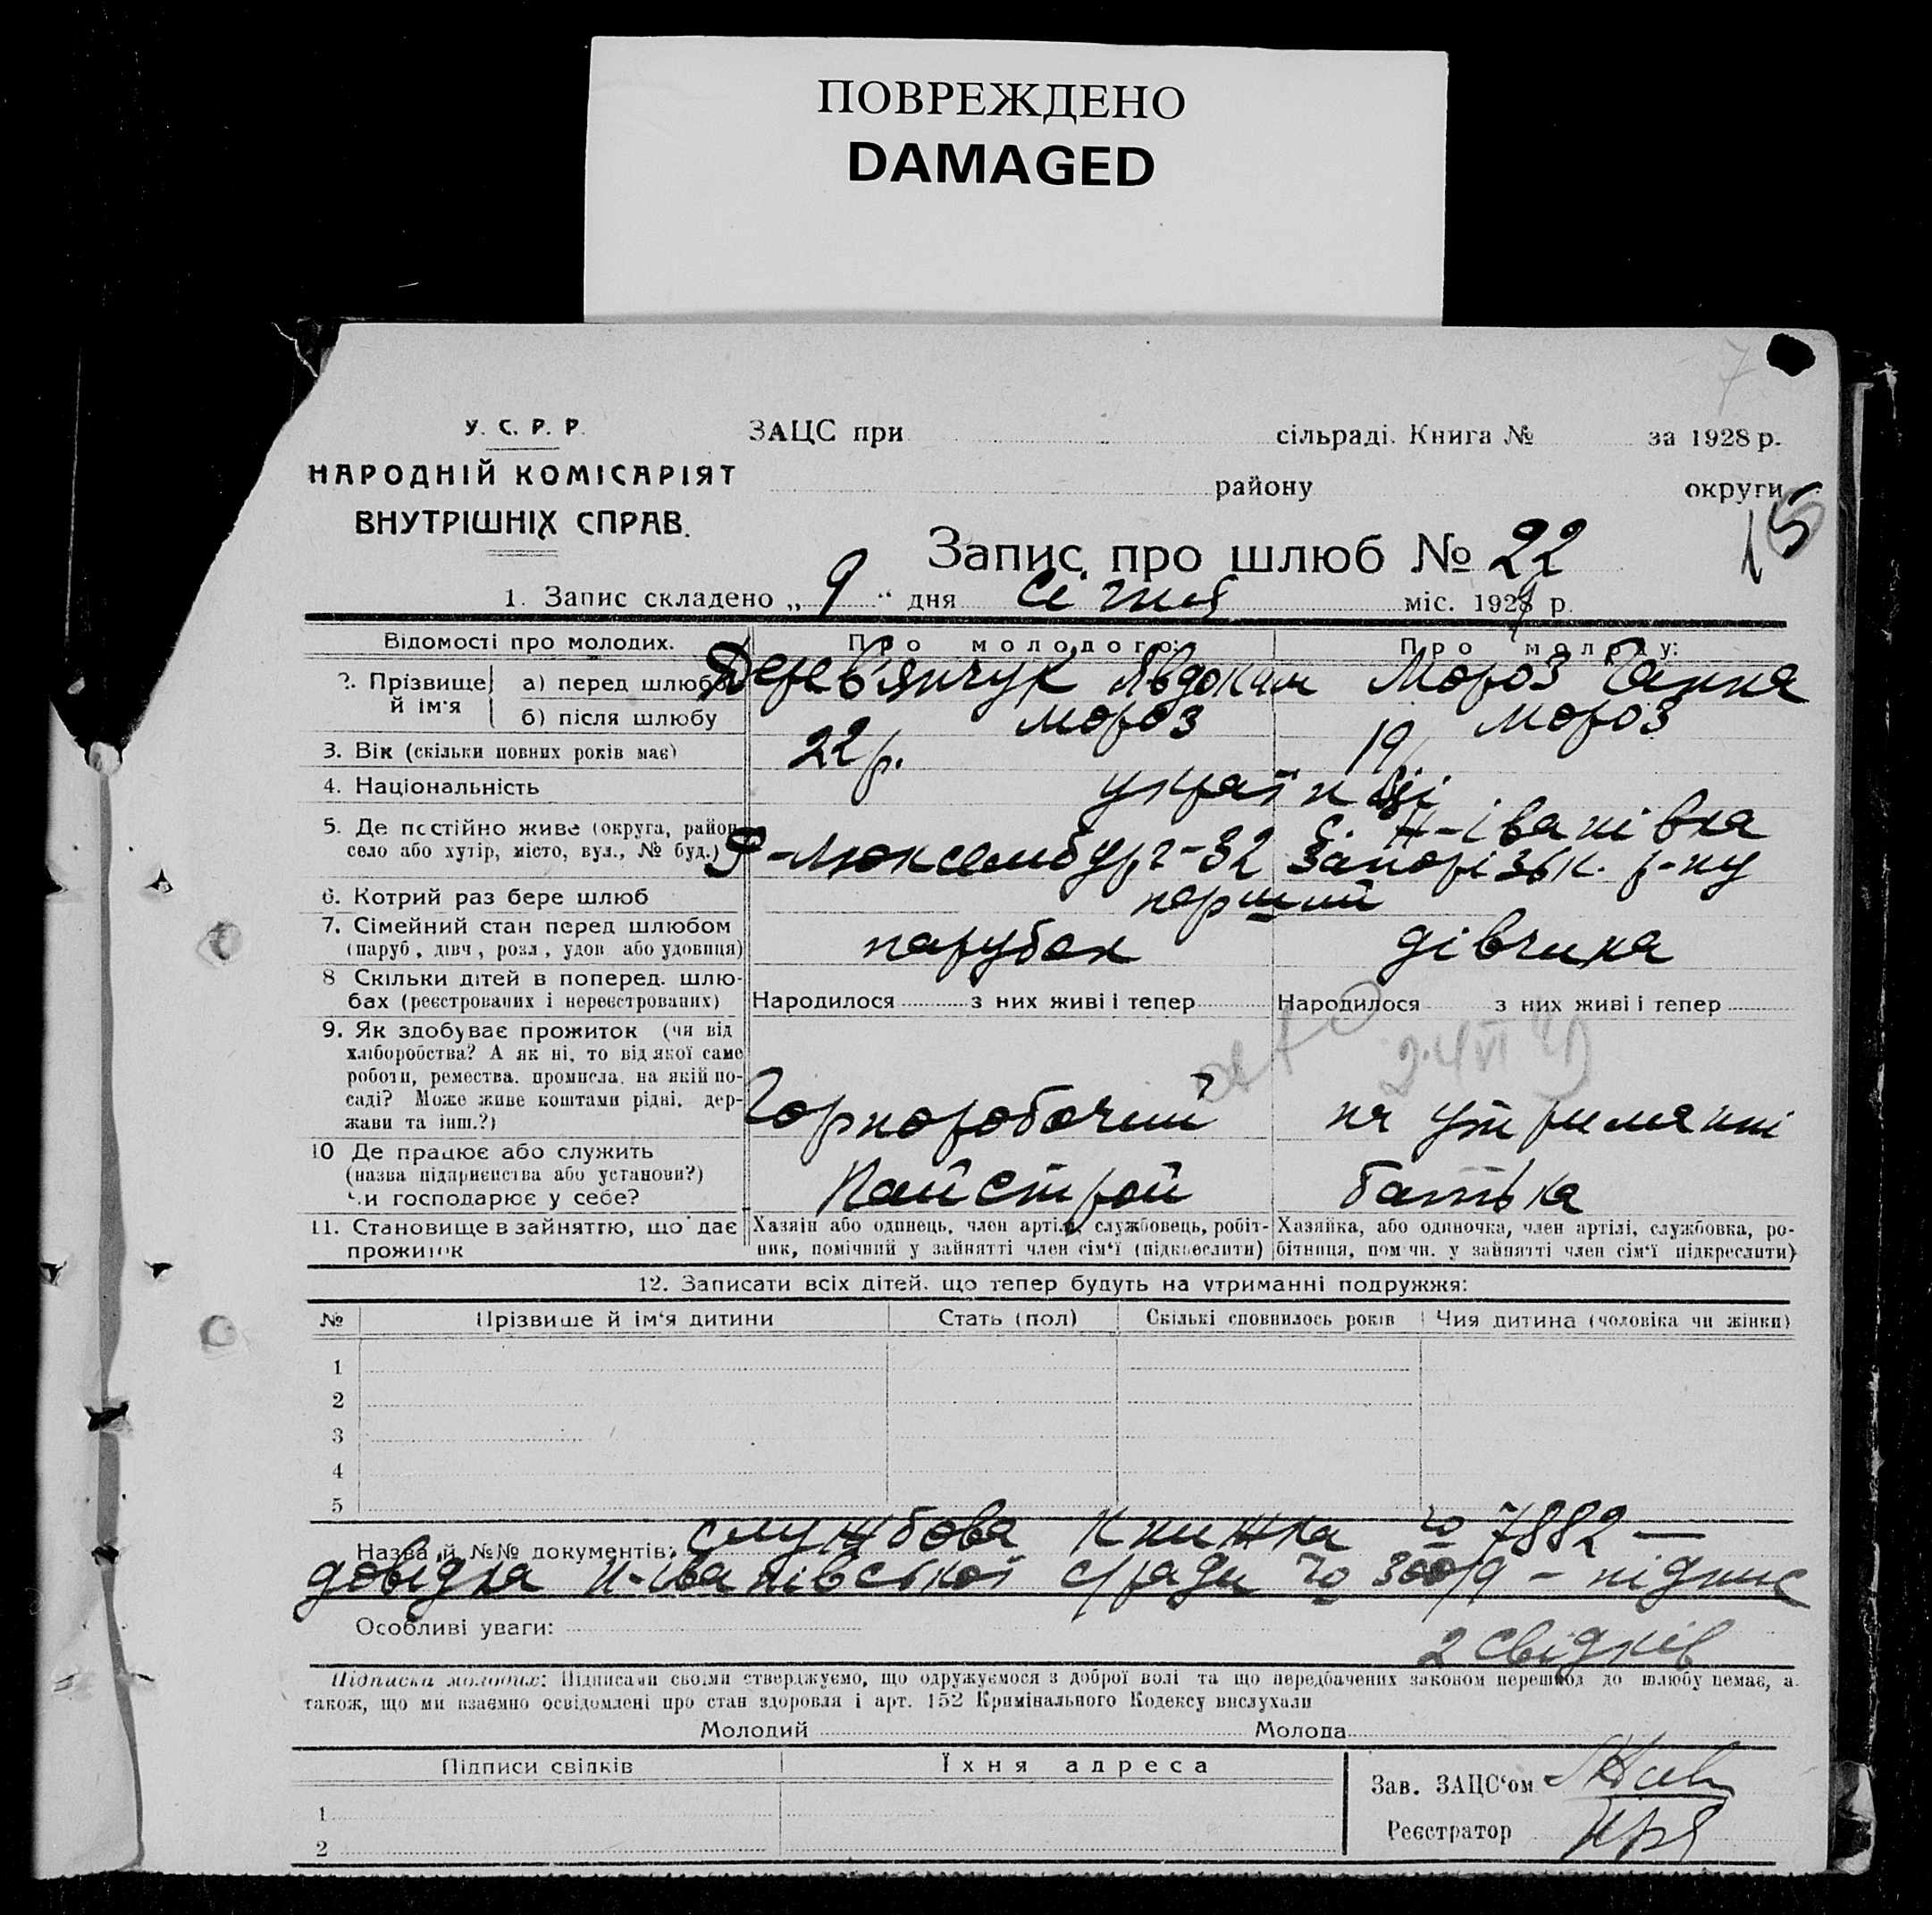 ПОВРЕЖДЕНО
DAMAGED
7
У. С. Р. Р.
НАРОДНІЙ КОМІСАРІЯТ
ВНУТРІШНІХ СПРАВ.
ЗАЦС при сільраді. Книга № за 1928 р.
району округи
15
Запис про шлюб № 22
1. Запис складено „ 9 “ дня Січня міс. 1929 р.
Відомості про молодих. Про молодого: Про молоду:
2. Прізвище й ім'я а) перед шлюбом Дерев'янчук Явдоким Мороз Ганна
б) після шлюбу Мороз Мороз
3. Вік (скільки повних років має) 22 р. 19
4. Національність українці
5. Де постійно живе (округа, район, с. Н-Іванівка
село або хутір, місто, вул., № буд.) Р-Люксембург-32 Запорізьк. р-ну
6. Котрий раз бере шлюб перший
7. Сімейний стан перед шлюбом
(паруб, дівч, розл, удов або удовиця) парубок дівчина
8 Скільки дітей в поперед. шлю-
бах (реєстрованих і нереєстрованих) Народилося з них живі і тепер Народилося з них живі і тепер
9. Як здобуває прожиток (чи від
хліборобства? А як ні, то від якої саме
роботи, ремества, промисла, на якій по-
саді? Може живе коштами рідні, дер-
жави та інш.?) Горноробочий на утриманні
10 Де працює або служить
(назва підприємства або установи?)
чи господарює у себе? батька
11. Становище в зайняттю, що дає
прожиток
Хазяін або одинець, член артілі, службовець, робіт-
ник, помічний у зайнятті член сім'ї (підкреслити)
Хазяйка, або одиночка, член артілі, службовка, ро-
бітниця, пом чн. у зайнятті член сім'ї підкреслити)
12. Записати всіх дітей, що тепер будуть на утриманні подружжя:
№ Прізвище й ім'я дитини Стать (пол) Скількі сповнилось років Чия дитина (чоловіка чи жінки)
1
2
3
4
5
Назва й №№ документів: службова книжка № 7882 —
довідка Н-Іванівської с/ради № 300/9 – підпис
Особливі уваги: 2 свідків
Підписи молодих: Підписами своїми стверджуємо, що одружуємося з доброї волі та що передбачених законом перешкод до шлюбу немає, а
також, що ми взаємно освідомлені про стан здоровля і арт. 152 Кримінального Кодексу вислухали
Молодий Молода
Підписи свідків Їхня адреса
Зав. ЗАЦС'ом
1
Реєстратор
2